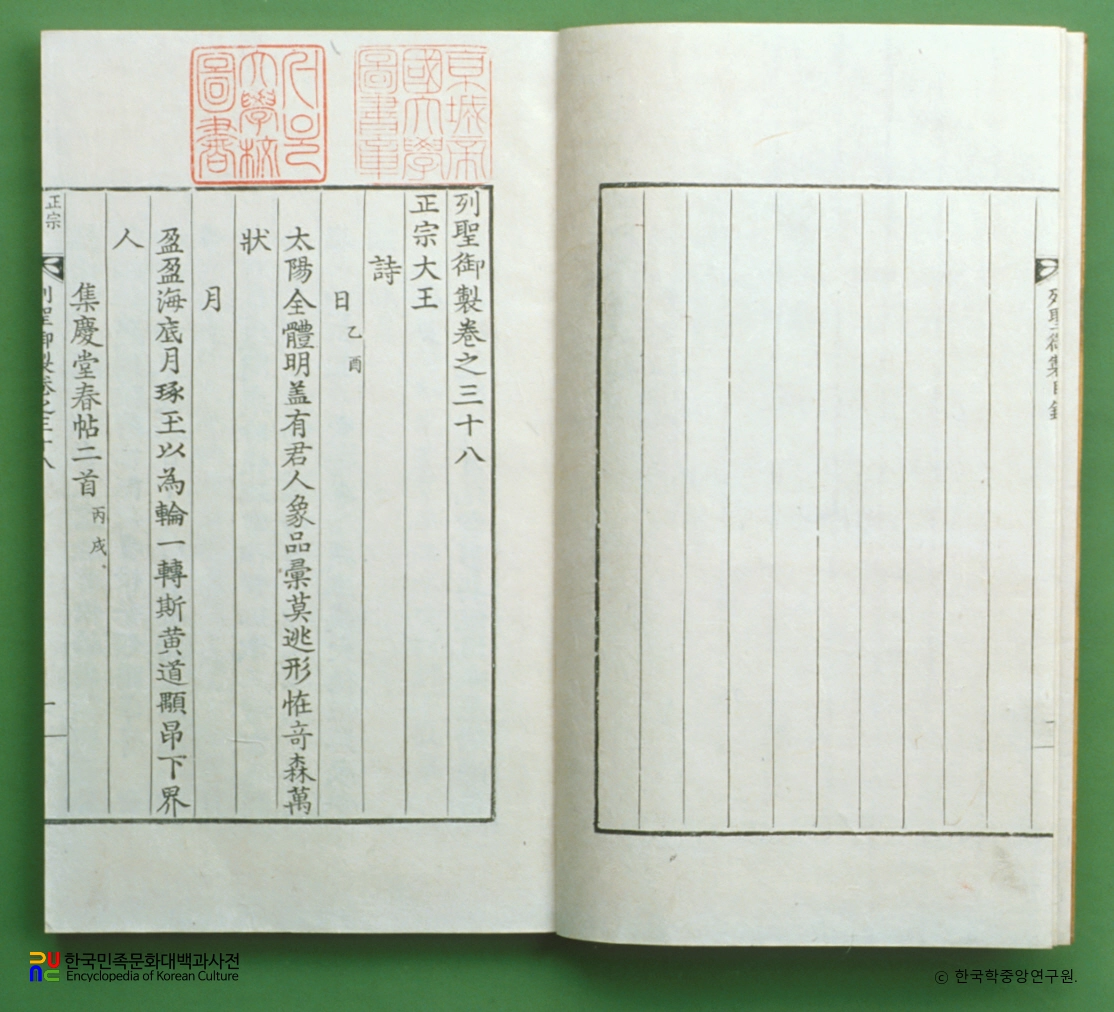 京城帝
國大學
圖書章
서울
大學校
圖書
列聖御製卷之三十八
正宗大王
詩
日 乙酉
太陽全體明盖有君人象品彙莫逃形恠竒森萬
狀
月
盈盈海底月琢玉以為輪一轉斯黄道顯昂下界
人
集慶堂春帖二首 丙戌
正宗
列聖御製卷之三十八
一
列聖御製目錄
한국민족문화대백과사전
Encyclopedia of Korean Culture
ⓒ 한국학중앙연구원.